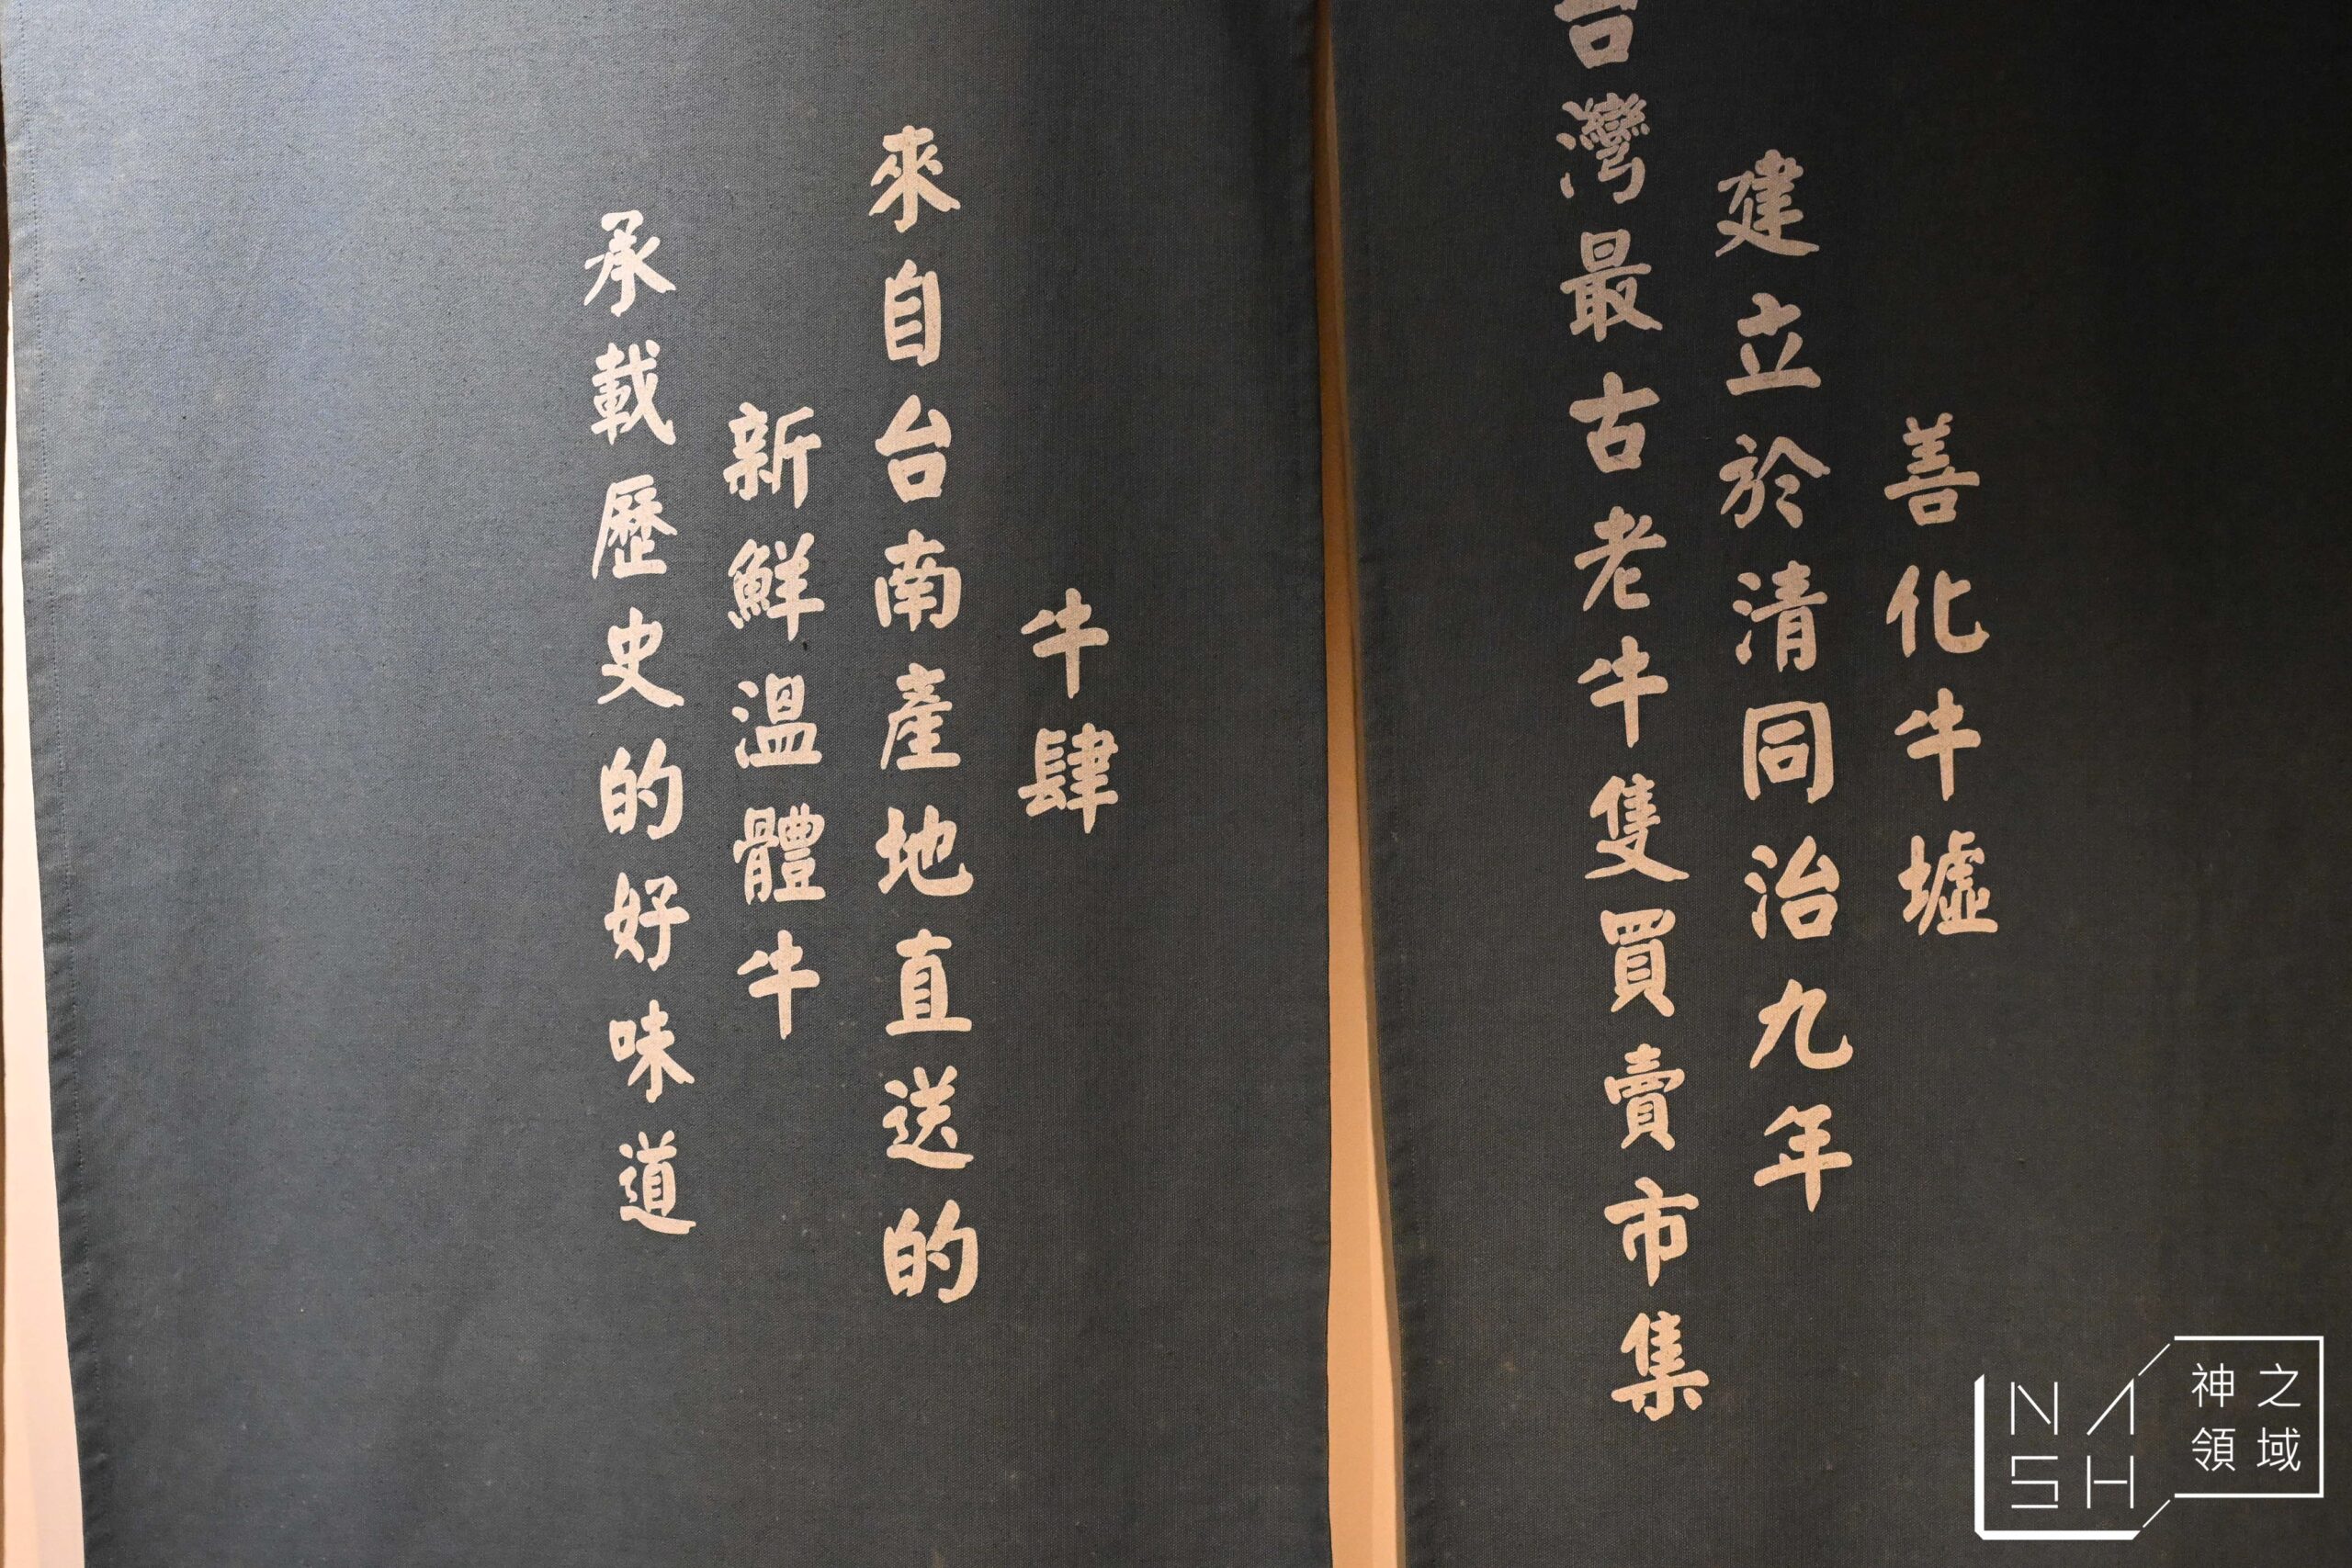 善化牛墟
建立於清同治九年
台灣最古老牛隻買賣市集
牛肆
來自台南產地直送的
新鮮溫體牛
承載歷史的好味道
NASH
神之領域